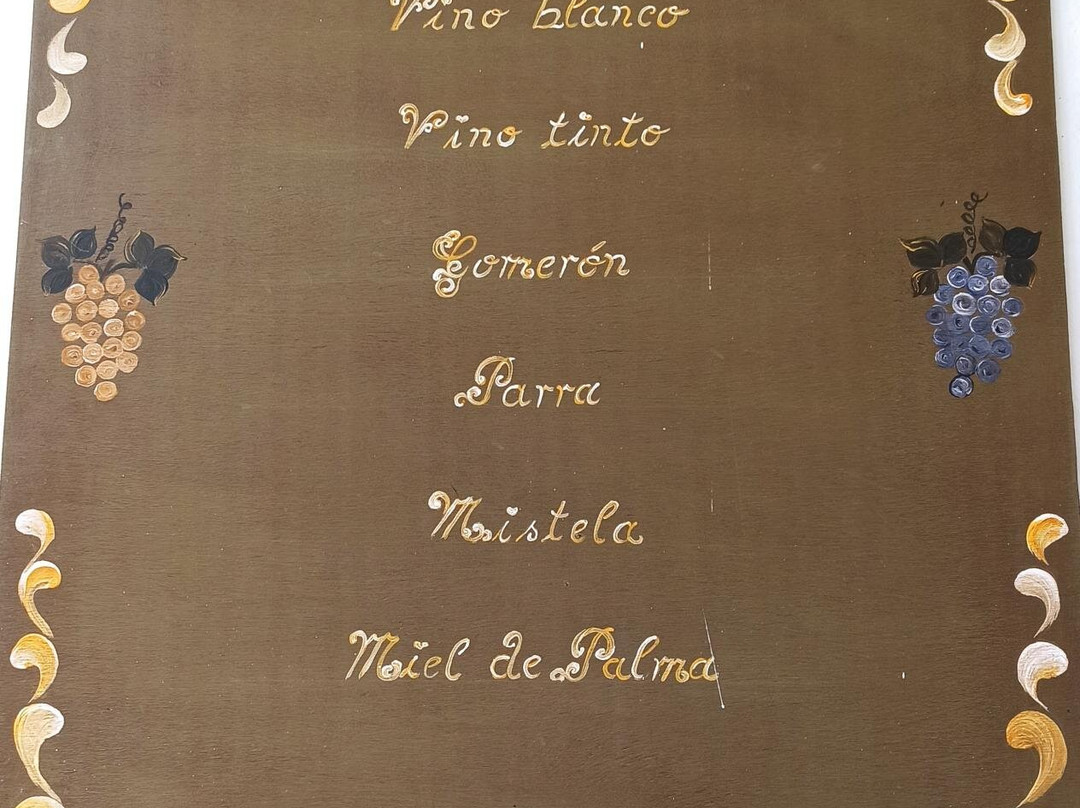 Vino blanco
Vino tinto
Gomerón
Parra
Mistela
Miel de Palma